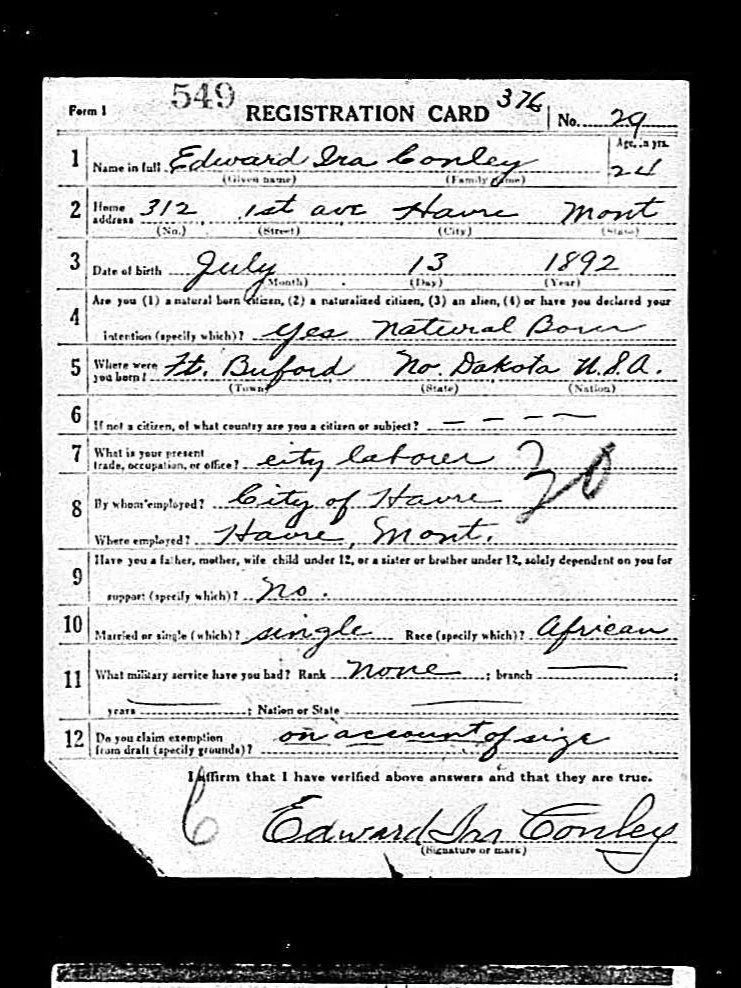 549
Form 1 REGISTRATION CARD 376 No. 29
1 Name in full Edward Ira Conley Age, in yrs. 24
(Given name) (Family name)
2 Home address 312 1st ave Havre Mont
(No.) (Street) (City) (State)
3 Date of birth July 13 1892
(Month) (Day) (Year)
4 Are you (1) a natural born citizen, (2) a naturalized citizen, (3) an alien, (4) or have you declared your
intention (specify which)? yes Natural Born
5 Where were you born? Ft. Buford No. Dakota U.S.A.
(Town) (State) (Nation)
6 If not a citizen, of what country are you a citizen or subject? — — — —
7 What is your present trade, occupation, or office? city laborer 20
8 By whom employed? City of Havre
Where employed? Havre, Mont.
9 Have you a father, mother, wife child under 12, or a sister or brother under 12, solely dependent on you for
support (specify which)? No.
10 Married or single (which)? single Race (specify which)? African
11 What military service have you had? Rank none ; branch — ;
years — ; Nation or State —
12 Do you claim exemption from draft (specify grounds)? on account of size
I affirm that I have verified above answers and that they are true.
6 Edward Ira Conley
(Signature or mark)